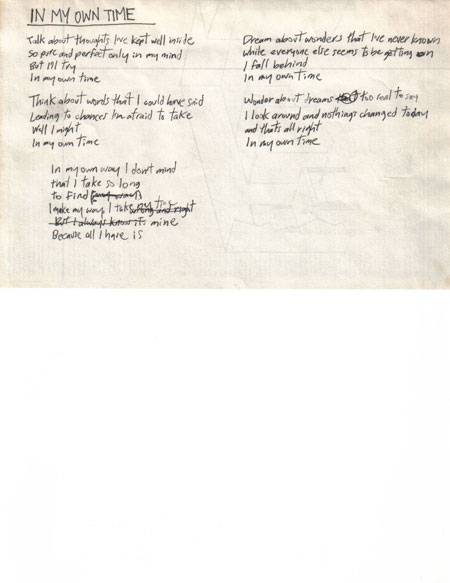 IN MY OWN TIME
Talk about thoughts I've kept well inside
So pure and perfect only in my mind
But I'll try
In my own time
Think about words that I could have said
Leading to chances I'm afraid to take
Well I might
In my own time
In my own way I don't mind
that I take so long
to find
I make my way I take my time
But I always know it's mine
Because all I have is
Dream about wonders that I've never known
while everyone else seems to be getting on
I fall behind
In my own time
Wonder about dreams too real to say
I look around and nothings changed today
and that's all right
In my own time